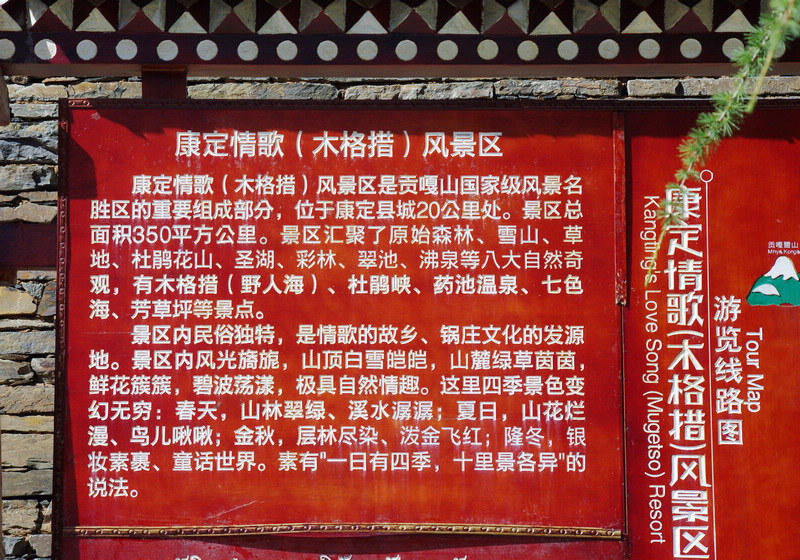 康定情歌（木格措）风景区
康定情歌（木格措）风景区是贡嘎山国家级风景名
胜区的重要组成部分，位于康定县城20公里处。景区总
面积350平方公里。景区汇聚了原始森林、雪山、草
地、杜鹃花山、圣湖、彩林、翠池、沸泉等八大自然奇
观，有木格措（野人海）、杜鹃峡、药池温泉、七色
海、芳草坪等景点。
景区内民俗独特，是情歌的故乡、锅庄文化的发源
地。景区内风光旖旎，山顶白雪皑皑，山麓绿草茵茵，
鲜花簇簇，碧波荡漾，极具自然情趣。这里四季景色变
幻无穷：春天，山林翠绿、溪水潺潺；夏日，山花烂
漫、鸟儿啾啾；金秋，层林尽染、泼金飞红；隆冬，银
妆素裹、童话世界。素有"一日有四季，十里景各异"的
说法。
康定情歌(木格措)风景区
Kangting's Love Song (Mugetso) Resort
游览线路图
Tour Map
贡嘎雪山
Minya Konga